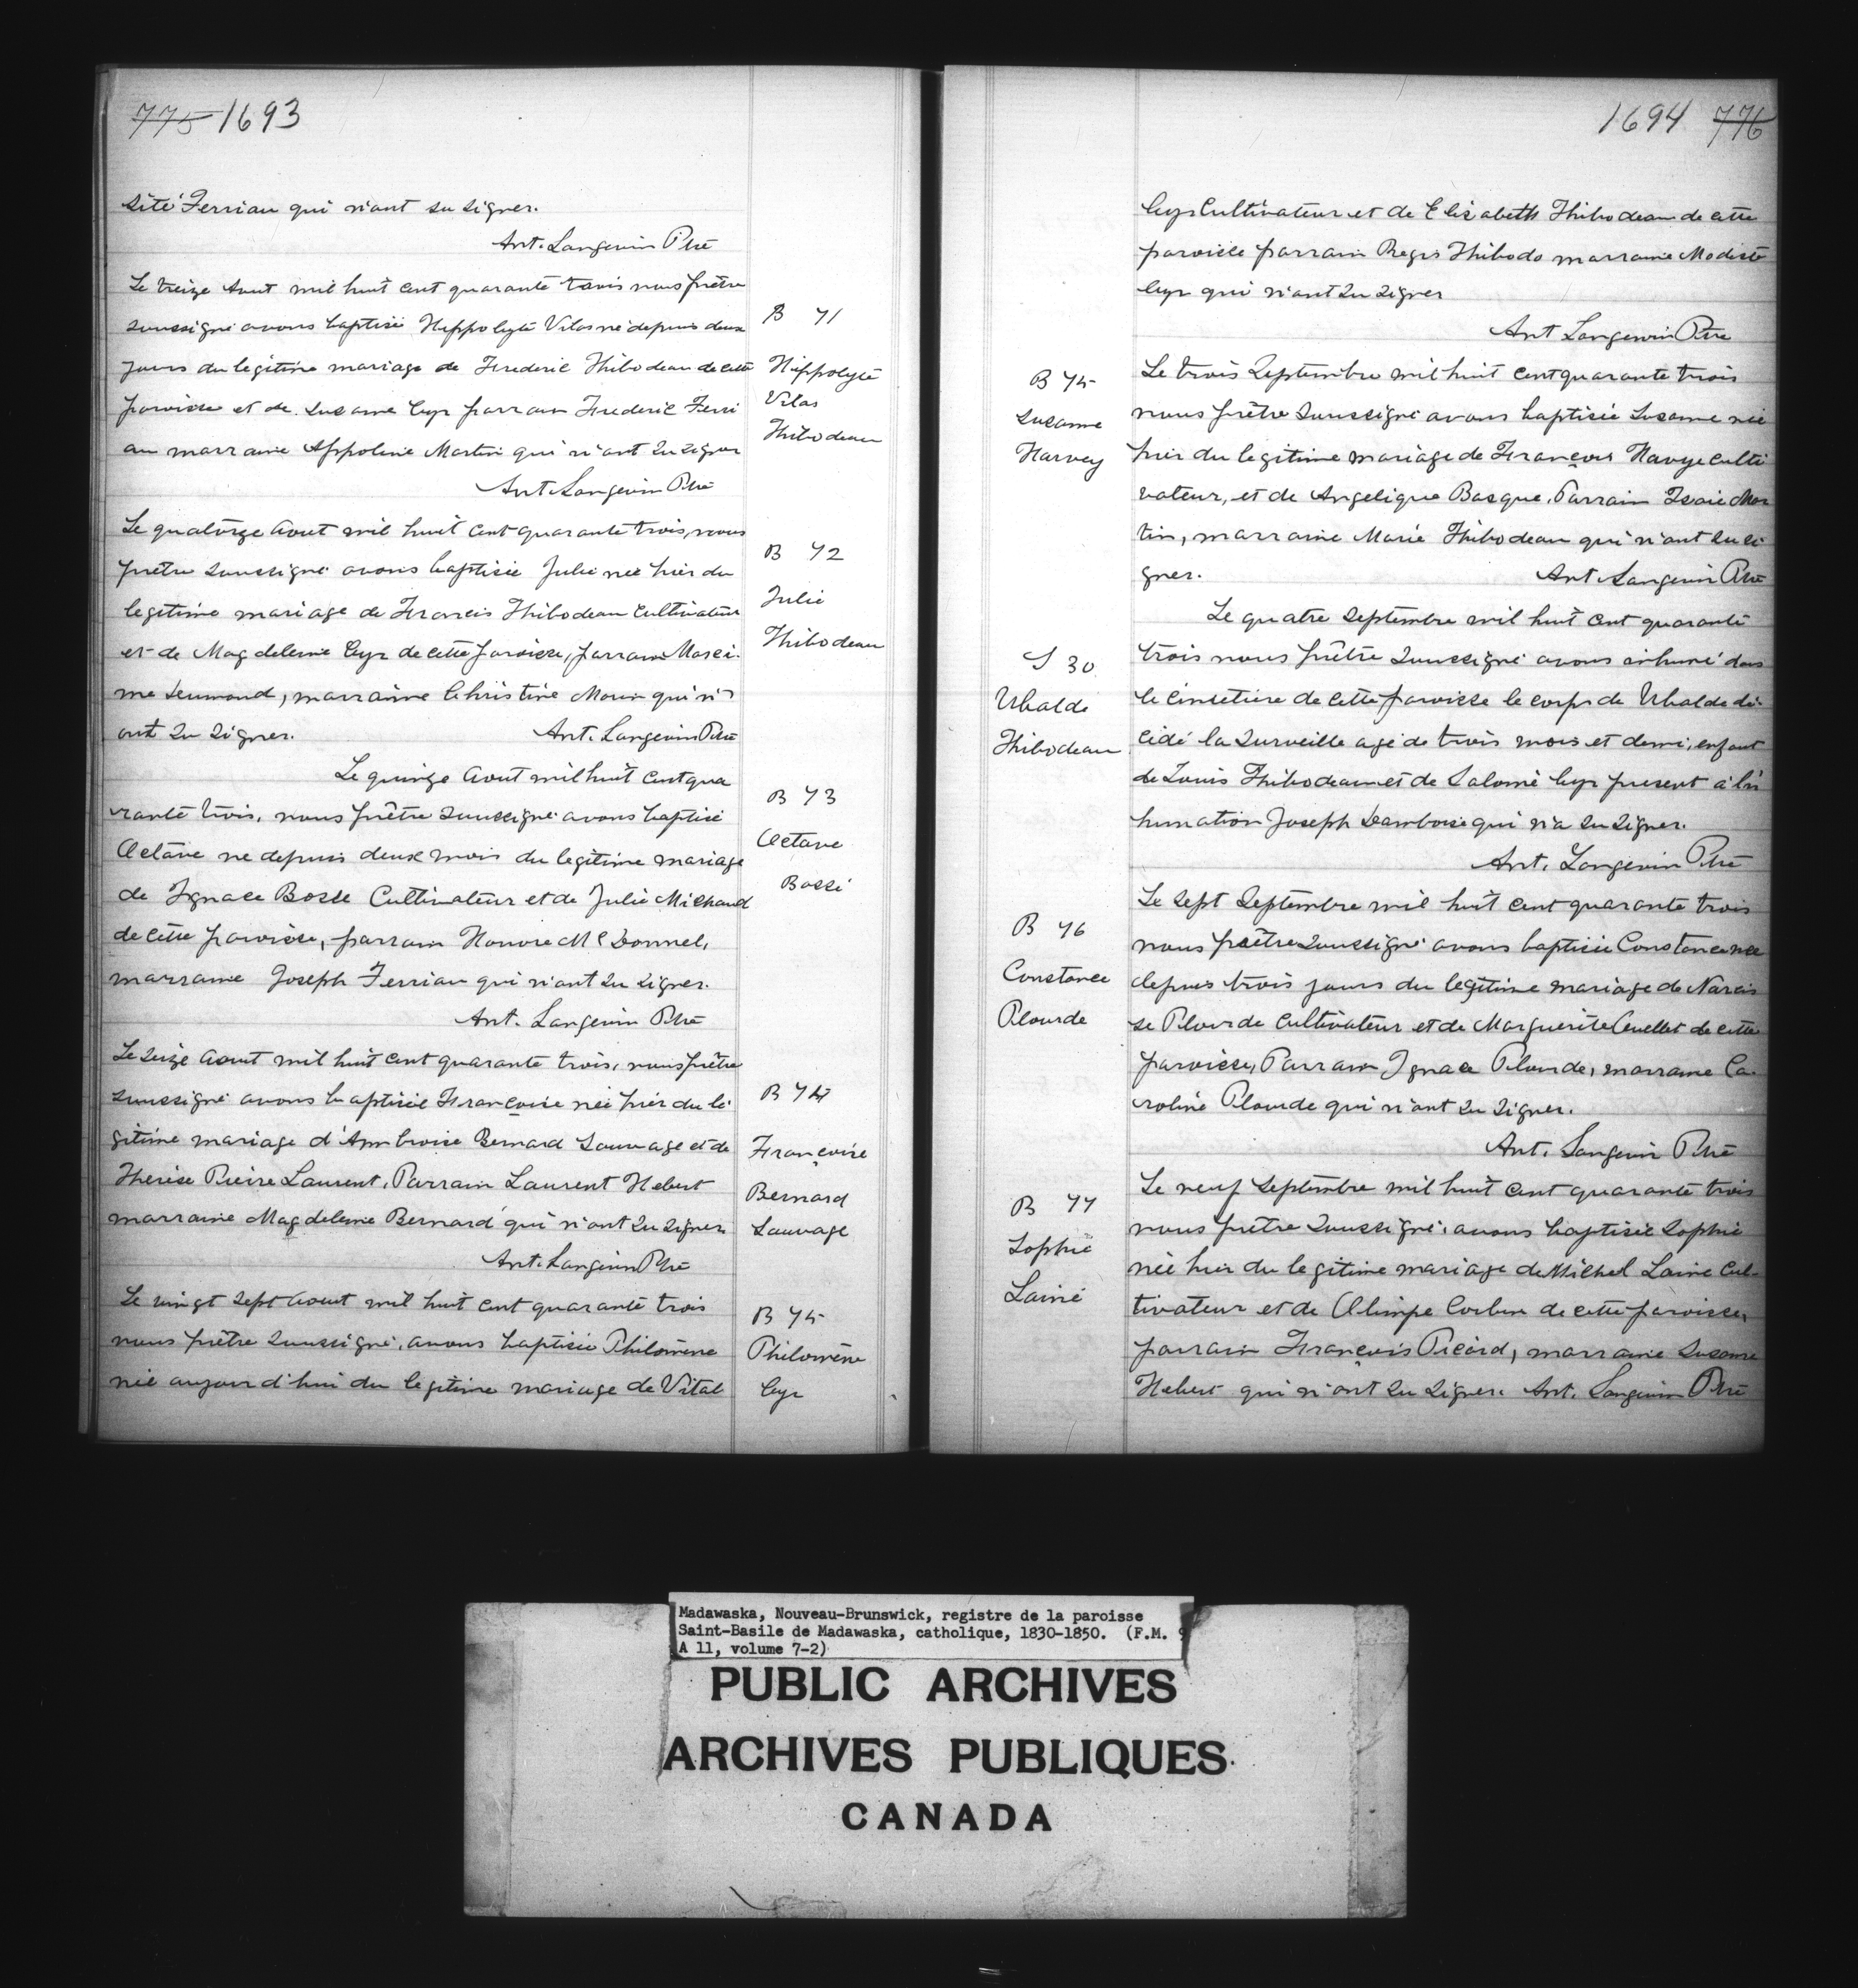 775 1693
sité Ferriau qui n'ont su signer.
Ant. Langevin Ptre
Le treize Aout mil huit cent quarante trois nous prêtre
soussigné avons baptisé Hippolyte Vilas né depuis deux
jours du légitime mariage de Frederic Thibodeau de cette
paroisse et de Susanne Cyr parrain Frederic Ferri
au marraine Appoline Martin qui n'ont su signer
Ant Langevin Ptre
B 71
Hippolyte
Vilas
Thibodeau
Le quatorze Aout mil huit cent quarante trois, nous
prêtre soussigné avons baptisée Julie née hier du
legitime mariage de Francis Thibodeau Cultivateur
et de Magdeleine Cyr de cette paroisse, parrain Maxi-
me Leumond, marraine Christine Morin qui n'
ont su signer. Ant. Langevin Ptre
B 72
Julie
Thibodeau
Le quinze Aout mil huit cent qua
rante trois, nous prêtre soussigné avons baptisé
Octave né depuis deux mois du legitime mariage
de Ignace Bosse Cultivateur et de Julie Michaud
de cette paroisse, parrain Honore McDonnel,
marraine Joseph Ferriau qui n'ont su signer.
Ant. Langevin Ptre
B 73
Octave
Bossé
Le seize Aout mil huit cent quarante trois, nous prêtre
soussigné avons baptisée Françoise née hier du lé
gitime mariage d'Ambroise Bernard Sauvage et de
Therèse Pierre Laurent, Parrain Laurent Hebert
marraine Magdeleine Bernard qui n'ont su signer
Ant. Langevin Ptre
B 74
Françoise
Bernard
Sauvage
Le vingt sept Aout mil huit cent quarante trois
nous prêtre soussigné, avons baptisée Philomène
née aujourd'hui du legitime mariage de Vital
B 75
Philomène
Cyr
1694 776
Cyr Cultivateur et de Elisabeth Thibodeau de cette
paroisse parrain Regis Thibodo marraine Modeste
Cyr qui n'ont su signer
Ant Langevin Ptre
B 75
Susanne
Harvey
Le trois Septembre mil huit cent quarante trois
nous prêtre soussigné avons baptisée Susanne née
hier du legitime mariage de François Havye culti
vateur, et de Angelique Basque. Parrain Isaie Mar
tin, marraine Marie Thibodeau qui n'ont su si
gner. Ant Langevin Ptre
S 30
Ubalde
Thibodeau
Le quatre Septembre mil huit cent quarante
trois nous prêtre soussigné avons inhumé dans
le cimetiere de cette paroisse le corps de Ubalde dé-
cidé la surveille agé de trois mois et demi, enfant
de Louis Thibodeau et de Salomé Cyr present à l'in
humation Joseph Damboise qui n'a su signer.
Ant. Langevin Ptre
B 76
Constance
Plourde
Le sept Septembre mil huit cent quarante trois
nous prêtre soussigné avons baptisée Constance née
depuis trois jours du legitime mariage de Narcis
se Plourde cultivateur et de Marguerite Ouellet de cette
paroisse, Parrain, Ignace Plourde, marraine Ca-
roline Plourde qui n'ont su signer.
Ant. Langevin Ptre
B 77
Sophie
Lainé
Le neuf Septembre mil huit cent quarante trois
nous prêtre soussigné, avons baptisée Sophie
née hier du legitime mariage de Michel Lainé Cul-
tivateur et de Olimpe Corbin de cette paroisse,
parrain François Picard, marraine Susanne
Hebert qui n'ont su signer. Ant. Langevin Ptre
Madawaska, Nouveau-Brunswick, registre de la paroisse
Saint-Basile de Madawaska, catholique, 1830-1850. (F.M. 9
A 11, volume 7-2)
PUBLIC ARCHIVES
ARCHIVES PUBLIQUES
CANADA